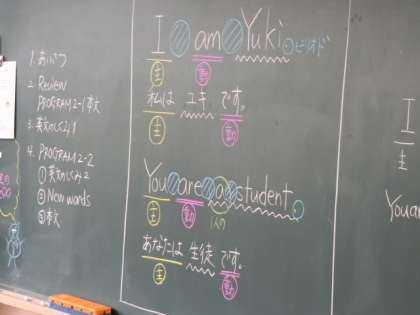 1. あいさつ
2. Review
PROGRAM 2-1 本文
3. 英文のしくみ1
4. PROGRAM 2-2
① 英文のしくみ2
② New words
③ 本文
I am Yuki.
ピリオド
主 動
私は ユキ です。
主 動
You are a student.
主 動 1人の
あなたは 生徒 です。
主 動
I
主
You are